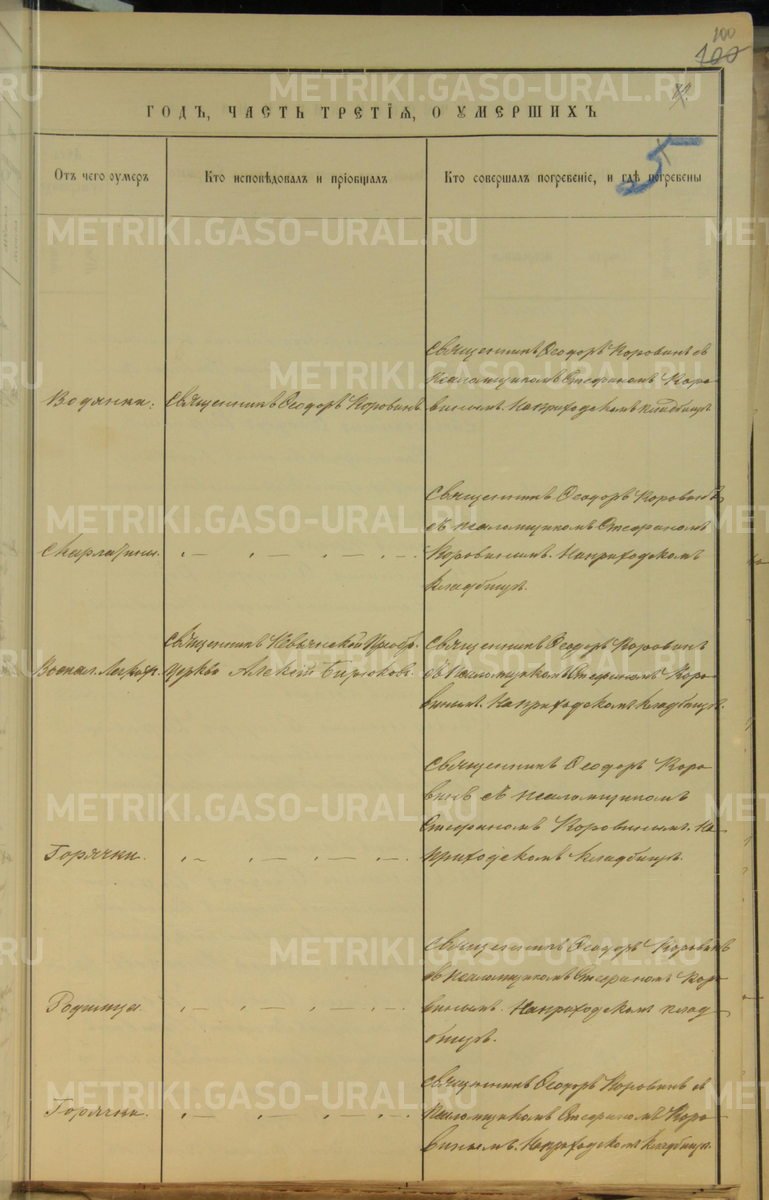 100
100
ГОДЪ, ЧАСТЬ ТРЕТІЯ, О УМЕРШИХЪ
Отъ чего оумеръ
Кто исповѣдовалъ и пріобщалъ
Кто совершалъ погребеніе, и гдѣ погребены
Водянки.
Священникъ Ѳеодоръ Коровинъ
Священникъ Ѳеодоръ Коровинъ съ
псаломщикомъ Стефаномъ Коро-
винымъ. На приходскомъ кладбищѣ
Скарлатины.
Священникъ Ѳеодоръ Коровинъ
съ псаломщикомъ Стефаномъ
Коровинымъ. На приходскомъ
кладбищѣ.
Воспал.
Священникъ Невьянской Преобр.
церкви Алексій Бирюковъ.
Священникъ Ѳеодоръ Коровинъ
съ псаломщикомъ Стефаномъ Коро-
винымъ. На приходскомъ кладбищѣ.
Горячки.
Священникъ Ѳеодоръ Коро
винъ съ псаломщикомъ
Стефаномъ Коровинымъ. На
приходскомъ кладбищѣ.
Родимца.
Священникъ Ѳеодоръ Коровинъ
съ псаломщикомъ Стефаномъ Коро-
винымъ. На приходскомъ клад
бищѣ.
Горячки.
Священникъ Ѳеодоръ Коровинъ съ
псаломщикомъ Стефаномъ Коро-
винымъ. На приходскомъ кладбищѣ.
METRIKI.GASO-URAL.RU